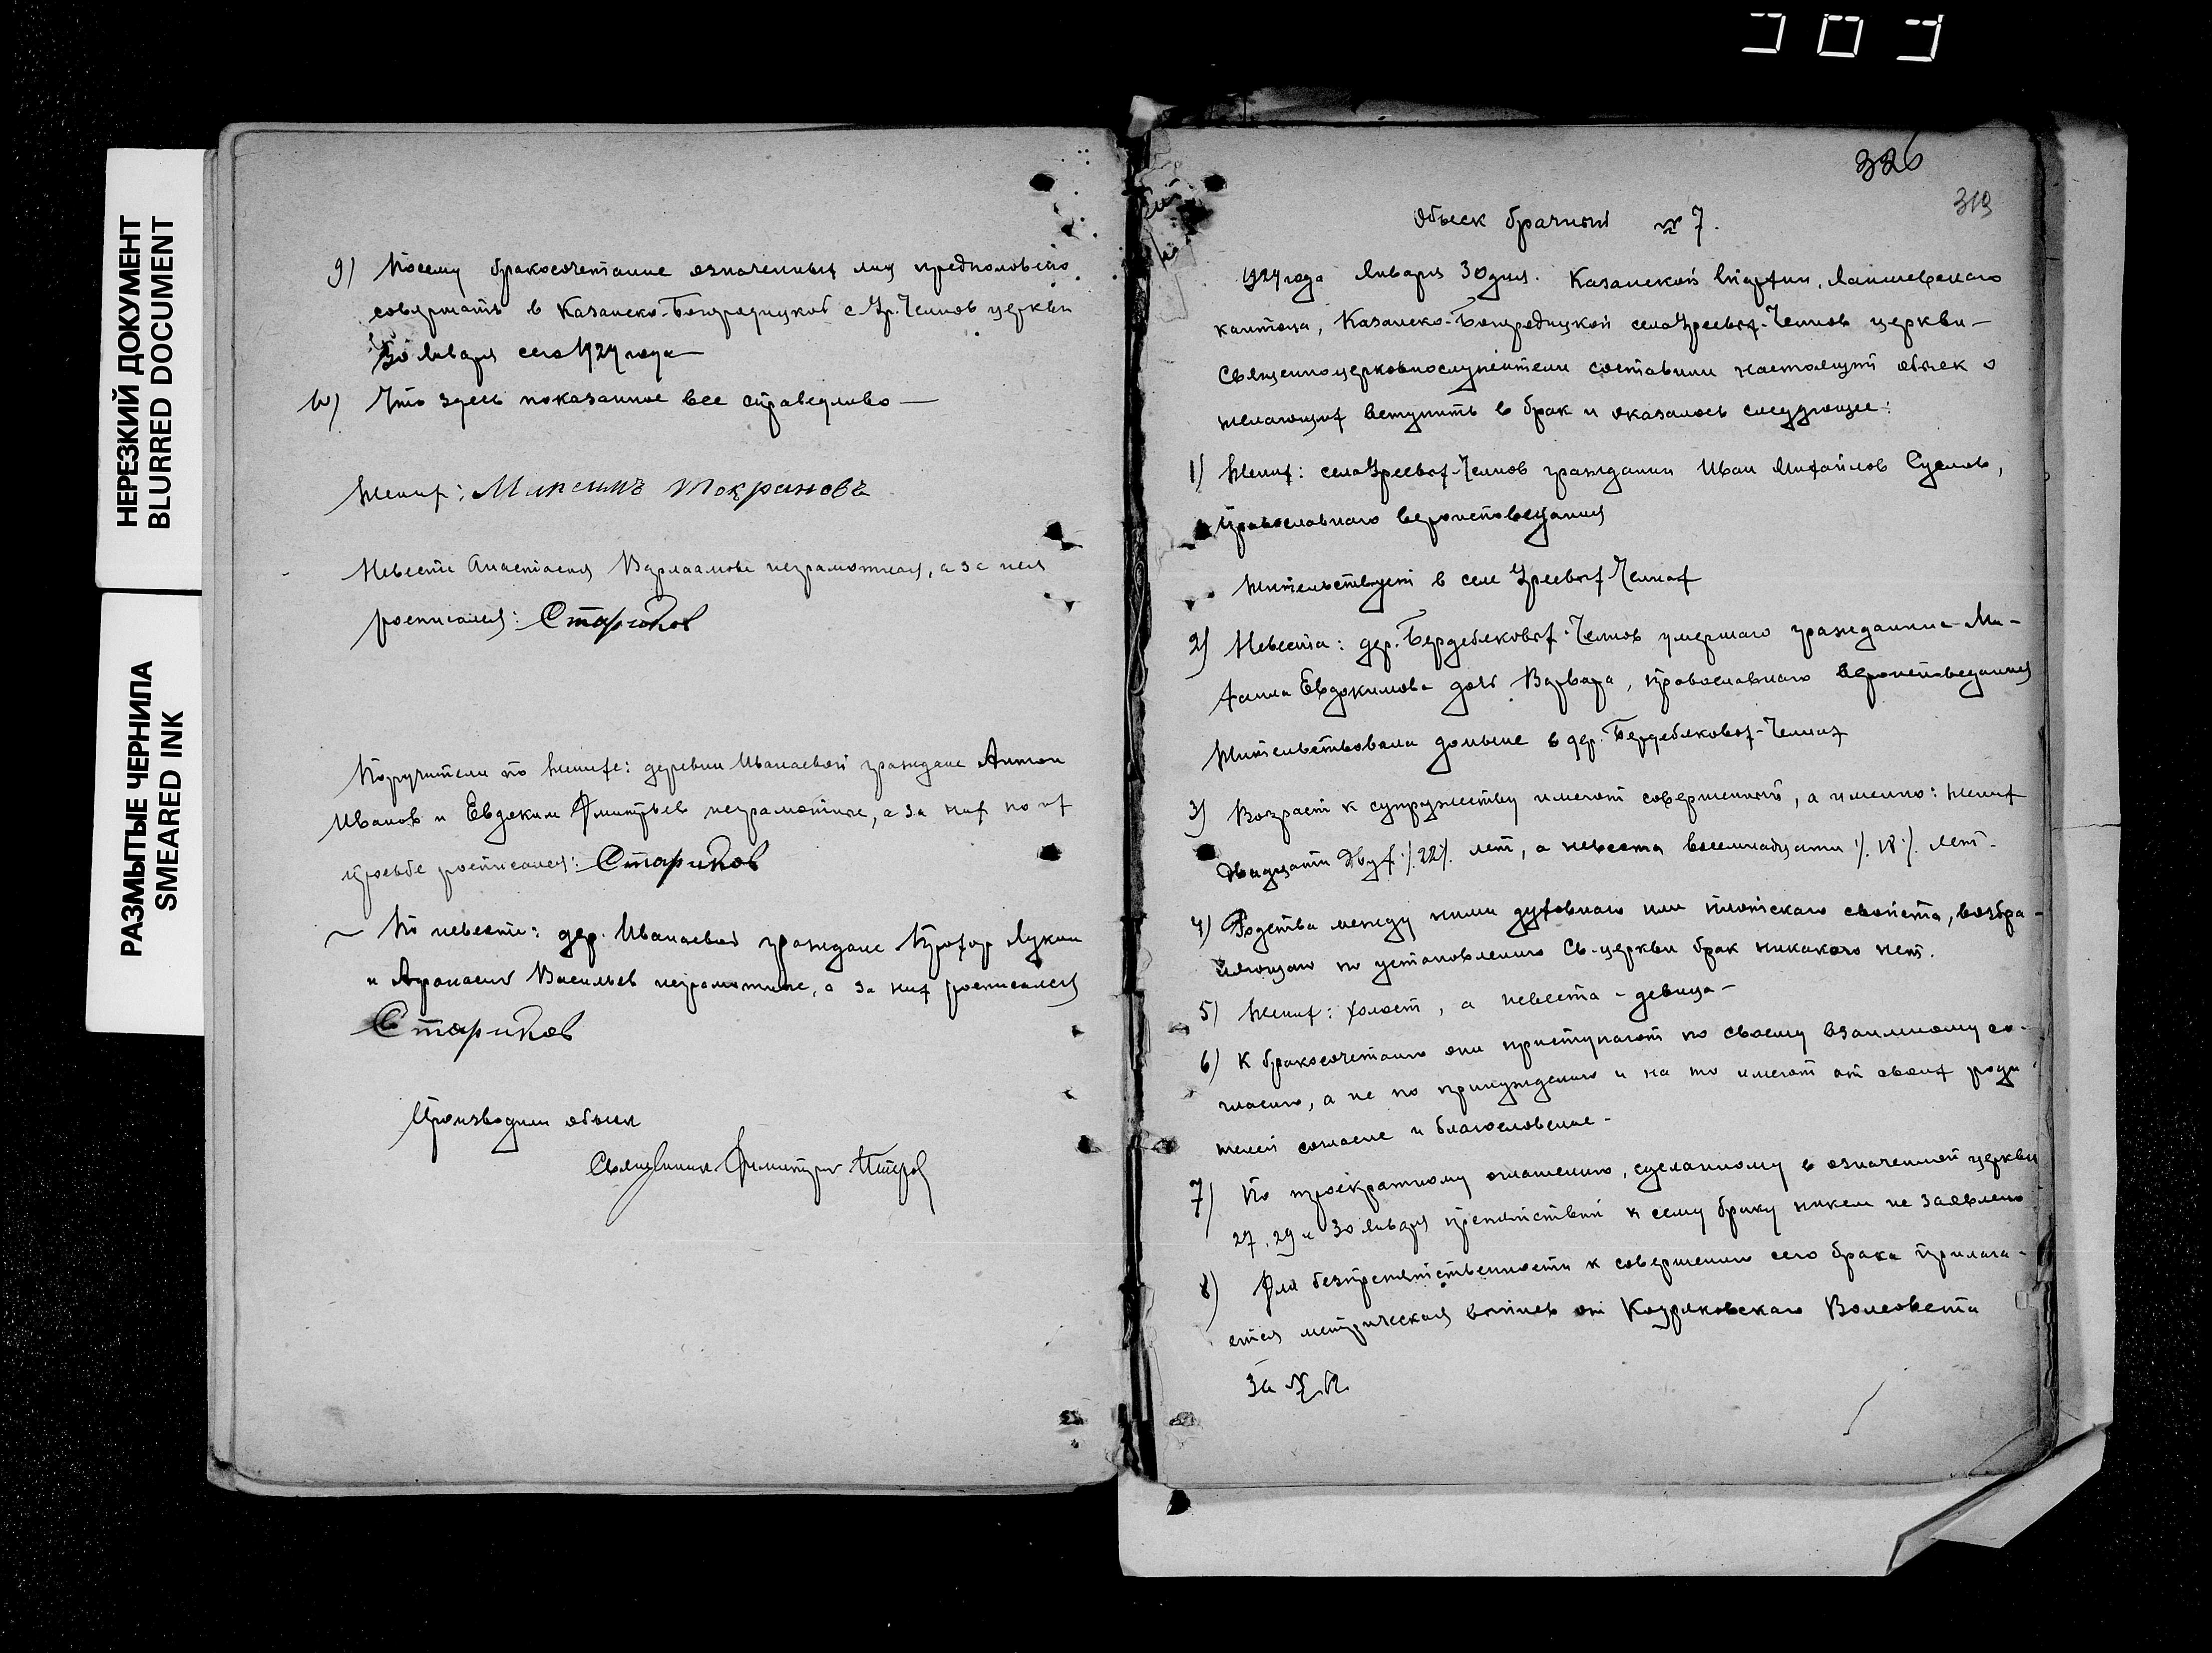 309
НЕРЕЗКИЙ ДОКУМЕНТ
BLURRED DOCUMENT
РАЗМЫТЫЕ ЧЕРНИЛА
SMEARED INK
9) Посему бракосочетание означенных лиц предположено
совершить в Казанско-Богородицкой с. Ур. Челнов церкви
30 Января сего 1924 года —
10) Что здесь показанное все справедливо —
Жених: Максимъ Токрановъ
Невеста Анастасия Варлаамова неграмотная, а за нея
росписался: Стариков
Поручители по женихе: деревни Иванаевой граждане Антон
Иванов и Евдоким Дмитрьев неграмотные, а за них по их
просьбе росписался: Стариков
По невесте: дер. Иванаевой граждане Прохор Лукин
и Афанасий Васильев неграмотные, а за них росписался
Стариков
Производили обыск
Священник Димитрий Петров
326
319
Обыск брачный № 7.
1924 года Января 30 дня. Казанской Епархии, Лаишевскаго
кантона, Казанско-Богородицкой села Уреевых-Челнов церкви —
Священноцерковнослужители составили настоящий обыск о
желающих вступить в брак и оказалось следующее:
1) Жених: села Уреевых-Челнов гражданин Иван Михайлов Суслов,
Православнаго вероисповедания
Жительствует в селе Уреевых Челнах
2) Невеста: дер. Бердебяковых-Челнов умершаго гражданина Ми-
хаила Евдокимова дочь Варвара, православнаго вероисповедания
Жительствовала доныне в дер. Бердебяковых-Челнах
3) Возраст к супружеству имеют совершенный, а именно: жених
двадцати двух ·/. 22 ·/. лет, а невеста восемнадцати ·/. 18 ·/. лет.
4) Родства между ними духовнаго или плотскаго свойства, возбра-
няющаго по установлению Св. церкви брак никакого нет.
5) Жених: холост, а невеста – девица –
6) К бракосочетанию они приступают по своему взаимному со-
гласию, а не по принуждению и на то имеют от своих роди-
телей согласие и благословение –
7) По троекратному оглашению, сделанному в означенной церкви
27, 29 и 30 Января препятствий к сему браку никем не заявлено
8) Для безпрепятственности к совершению сего брака прилага-
ется метрическая выпись от Козяковскаго Волсовета
За №